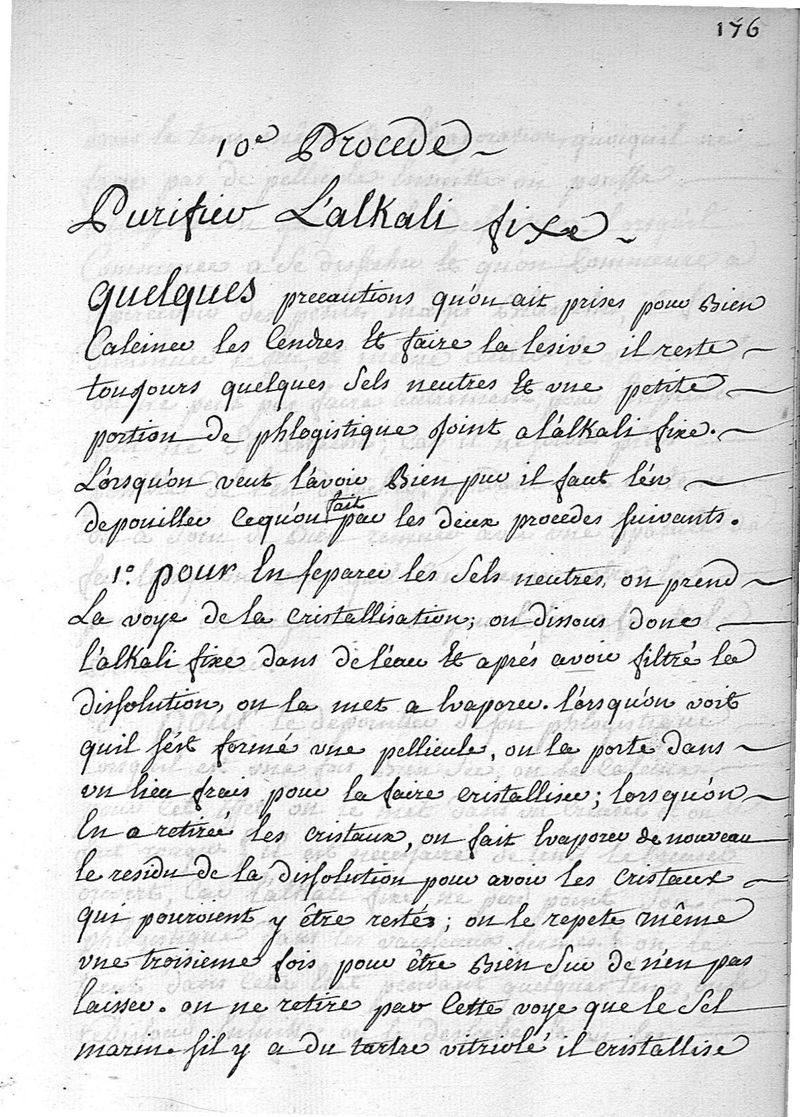 176
10e Procede
Purifier L'alkali fixe
quelques precautions qu'on ait prises pour Bien
Calciner les Cendres Et faire la lesive il reste
toujours quelques Sels neutres Et vne petite
portion de phlogistique Joint a l'alkali fixe.
Lorsqu'on veut l'avoir Bien pur il faut l'én
depouiller Cequ'on fait par les deux procedes suivants.
1o. pour En separer les Sels neutres, on prend
La voye de la cristallisation; on dissous donc
l'alkali fixe dans de l'éau Et aprés avoir filtré la
dissolution, on la met a Evaporer. lorsqu'on voit
quil s'ést formé vne pellicule, on la porte dans
vn lieu frais pour la faire cristalliser; lorsqu'on
En a retireé les cristaux, on fait Evaporer de nouveau
le residu de la dissolution pour avoir les cristaux
qui pouroient y être restés; on le repete même
vne troisieme fois pour être Bien Sûr de n'en pas
laisser. on ne retire par Cette voye que le Sel
marin s'il y a du tartre vitriolé il cristallise